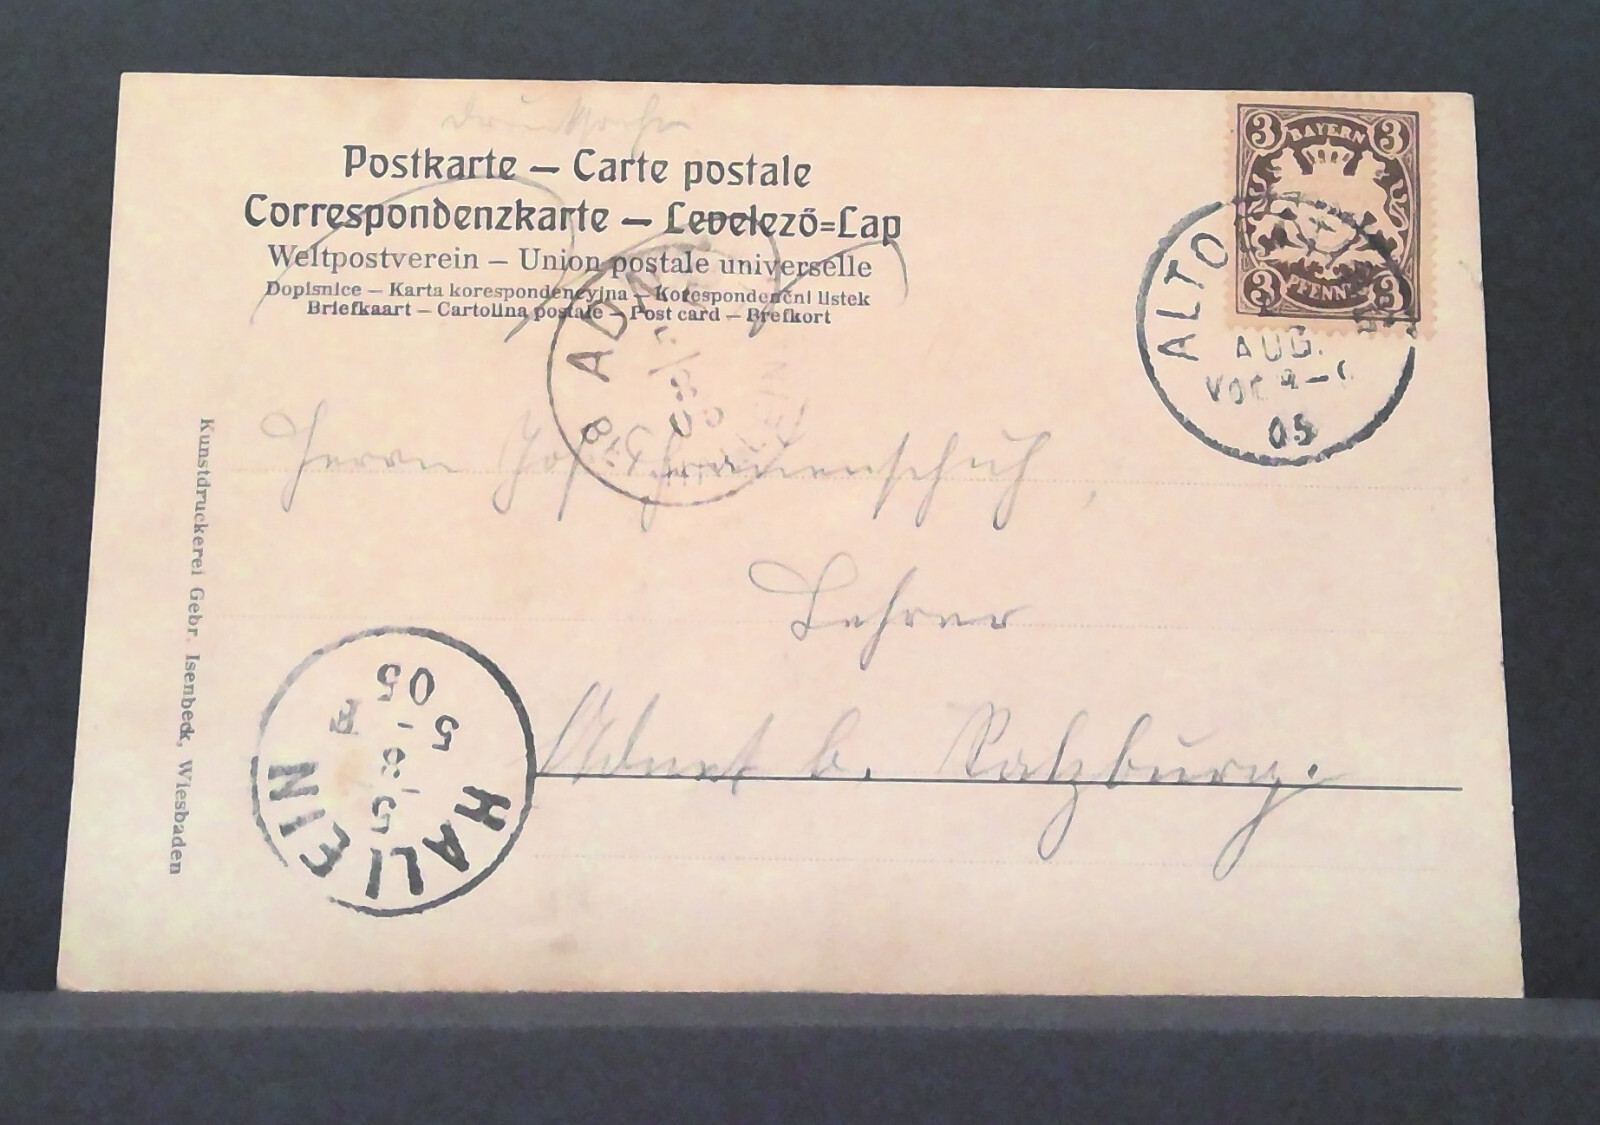 Drucksache
Postkarte – Carte postale
Correspondenzkarte – Levelező=Lap
Weltpostverein – Union postale universelle
Dopisnice – Karta korespondencyjna – Korespondenční listek
Briefkaart – Cartolina postale – Post card – Brefkort
3 BAYERN 3
3 PFENNIG 3
ALTO
AUG.
VOR.
05
ADN
Herrn Jos. Schramenschuh,
Lehrer
Adnet b. Salzburg.
HALLEIN
5 8 05
Kunstdruckerei Gebr. Isenbeck, Wiesbaden